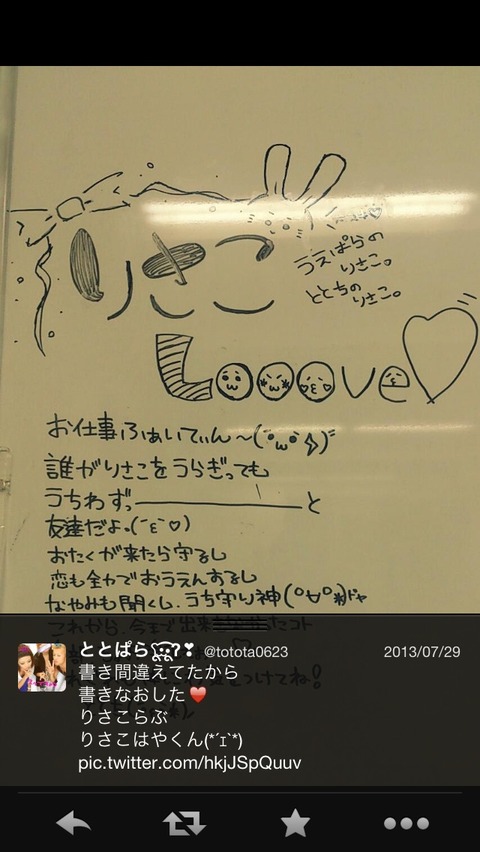 りさこ
うえぱらの
りさこ。
ととちの
りさこ。
Looove
お仕事ふぁいてぃん〜
誰がりさこをうらぎっても
うちわずっ――――――と
友達だよ。(´ε`♡)
おたくが来たら守るし
恋も全力でおうえんするし
なやみも聞くし、うち守り神(°∀°*)ドヤ
これから、今まで出来
たコト
つけてね!
ととぱら
@totota0623
2013/07/29
書き間違えてたから
書きなおした❤️
りさこらぶ
りさこはやくん(*´ｪ`*)
pic.twitter.com/hkjJSpQuuv